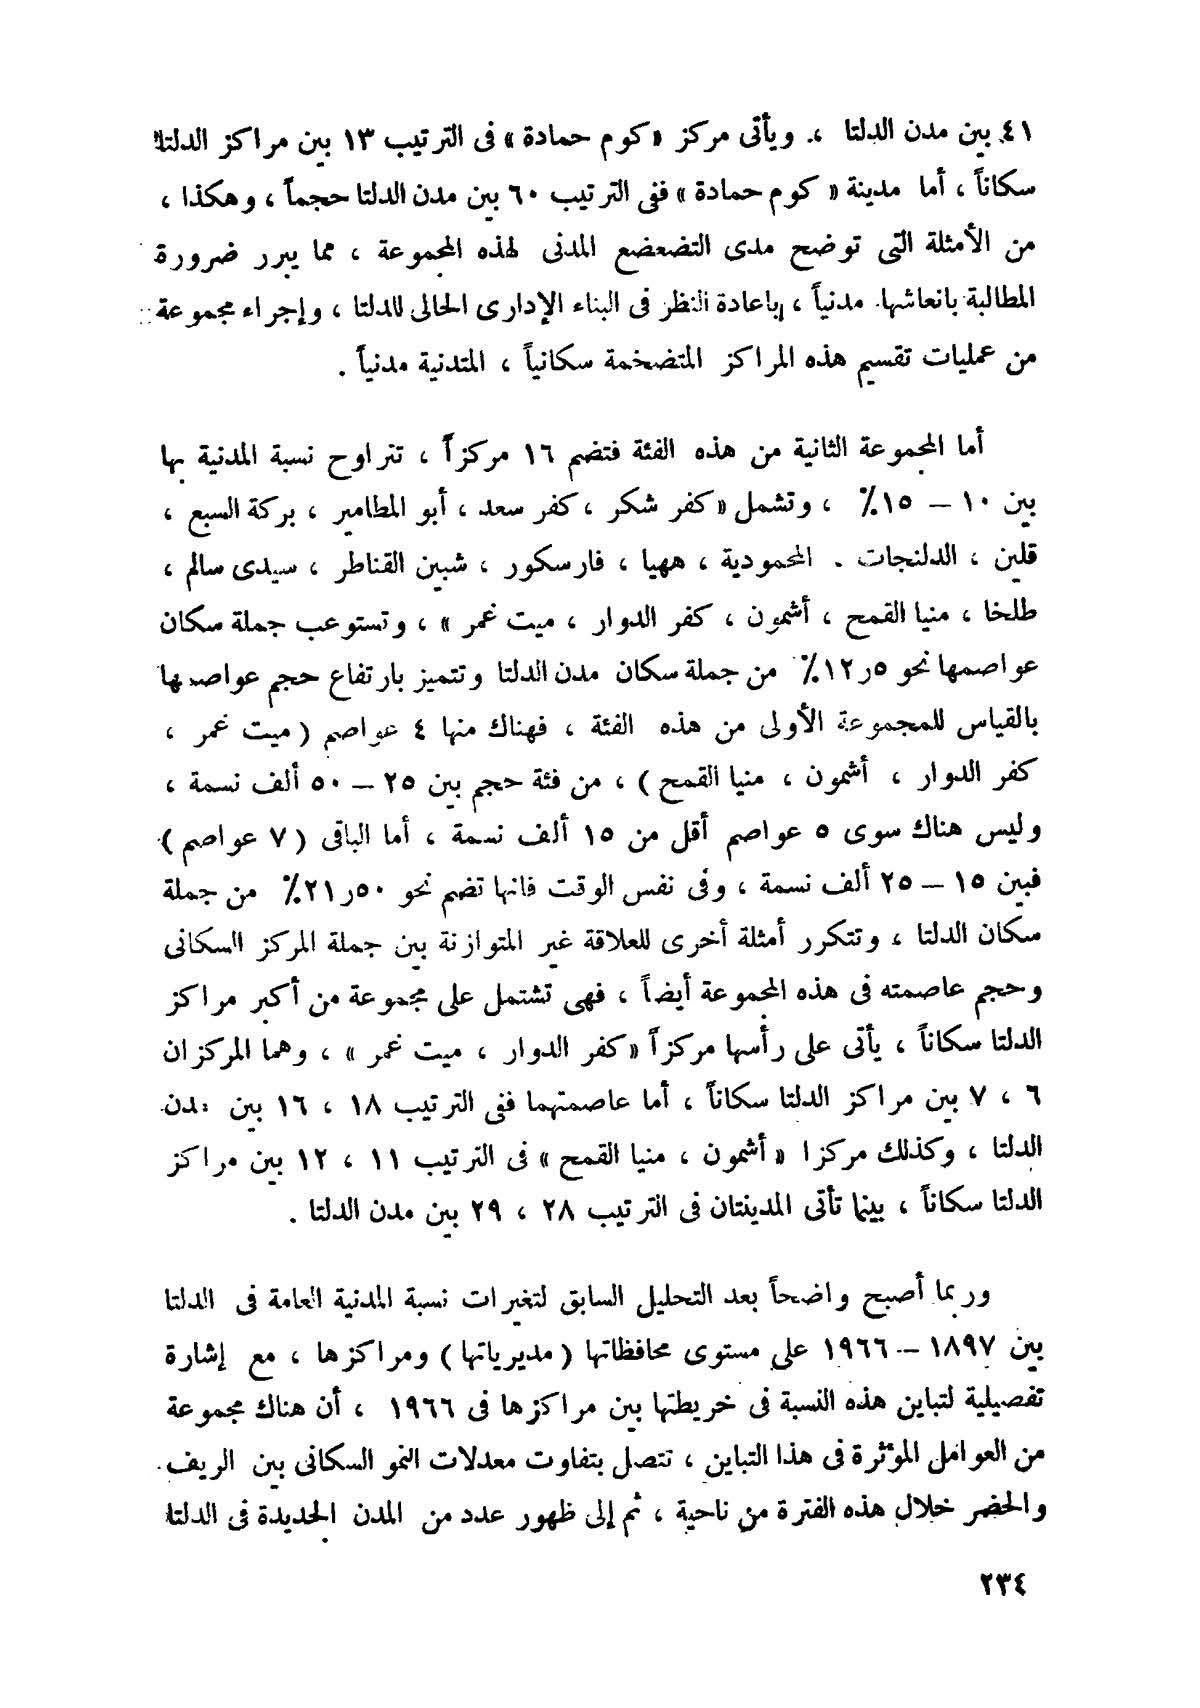 ٤١ بين مدن الدلتا ، ويأتى مركز «كوم حمادة» فى الترتيب ١٣ بين مراكز الدلتا
سكاناً ، أما مدينة « كوم حمادة » ففى الترتيب ٦٠ بين مدن الدلتا حجماً ، وهكذا ،
من الأمثلة التى توضح مدى التضعضع المدنى لهذه المجموعة ، مما يبرر ضرورة
المطالبة بانعاشها مدنياً ، باعادة النظر فى البناء الإدارى الحالى للدلتا ، وإجراء مجموعة
من عمليات تقسيم هذه المراكز المتضخمة سكانياً ، المتدنية مدنياً .
أما المجموعة الثانية من هذه الفئة فتضم ١٦ مركزاً ، تتراوح نسبة المدنية بها
بين ١٠ – ١٥٪ ، وتشمل «كفر شكر ، كفر سعد ، أبو المطامير ، بركة السبع ،
قلين ، الدلنجات . المحمودية ، ههيا ، فارسكور ، شبين القناطر ، سيدى سالم ،
طلخا ، منيا القمح ، أشمون ، كفر الدوار ، ميت غمر » ، وتستوعب جملة سكان
عواصمها نحو ٥ر١٢٪ من جملة سكان مدن الدلتا وتتميز بارتفاع حجم عواصمها
بالقياس للمجموعة الأولى من هذه الفئة ، فهناك منها ٤ عواصم ( ميت غمر ،
كفر الدوار ، أشمون ، منيا القمح ) ، من فئة حجم بين ٢٥ – ٥٠ ألف نسمة ،
وليس هناك سوى ٥ عواصم أقل من ١٥ ألف نسمة ، أما الباقى ( ٧ عواصم )
فبين ١٥ – ٢٥ ألف نسمة ، وفى نفس الوقت فانها تضم نحو ٥٠ر٢١٪ من جملة
سكان الدلتا ، وتتكرر أمثلة أخرى للعلاقة غير المتوازنة بين جملة المركز السكانى
وحجم عاصمته فى هذه المجموعة أيضاً ، فهى تشتمل على مجموعة من أكبر مراكز
الدلتا سكاناً ، يأتى على رأسها مركزاً «كفر الدوار ، ميت غمر » ، وهما المركزان
٦ ، ٧ بين مراكز الدلتا سكاناً ، أما عاصمتهما ففى الترتيب ١٨ ، ١٦ بين مدن
الدلتا ، وكذلك مركزا « أشمون ، منيا القمح » فى الترتيب ١١ ، ١٢ بين مراكز
الدلتا سكاناً ، بينما تأتى المدينتان فى الترتيب ٢٨ ، ٢٩ بين مدن الدلتا .
وربما أصبح واضحاً بعد التحليل السابق لتغيرات نسبة المدنية العامة فى الدلتا
بين ١٨٩٧ – ١٩٦٦ على مستوى محافظاتها ( مديرياتها ) ومراكزها ، مع إشارة
تفصيلية لتباين هذه النسبة فى خريطتها بين مراكزها فى ١٩٦٦ ، أن هناك مجموعة
من العوامل المؤثرة فى هذا التباين ، تتصل بتفاوت معدلات النمو السكانى بين الريف
والحضر خلال هذه الفترة من ناحية ، ثم إلى ظهور عدد من المدن الجديدة فى الدلتا
٢٣٤